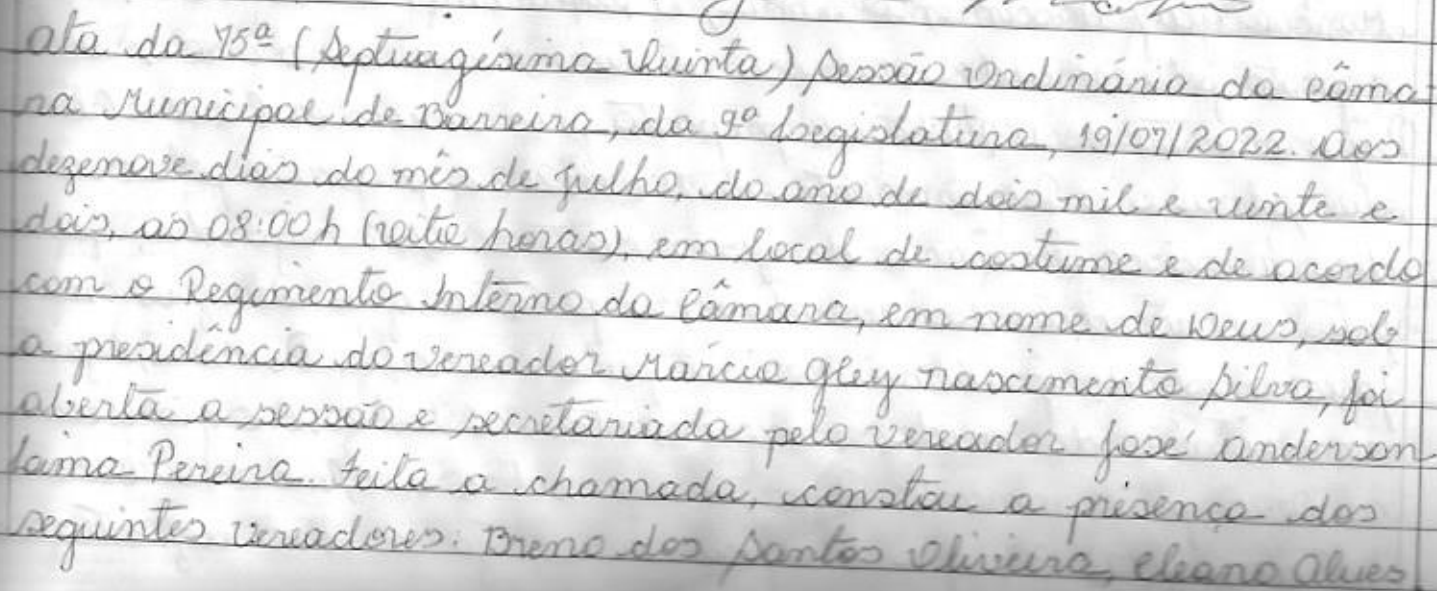 ata da 75ª (Septuagésima Quinta) Sessão Ordinária da Câma-
ra Municipal de Barreira, da 9ª Legislatura, 19/07/2022. Aos
dezenove dias do mês de julho, do ano de dois mil e vinte e
dois, as 08:00h (oito horas), em local de costume e de acordo
com o Regimento Interno da Câmara, em nome de Deus, sob
a presidência do vereador Márcio Gley Nascimento Silva, foi
aberta a sessão e secretariada pelo vereador José Anderson
Lima Pereira. Feita a chamada, constou a presença dos
seguintes vereadores: Breno dos Santos Oliveira, Alves